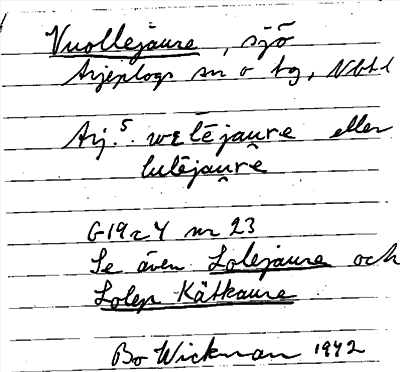 Vuollejaure, sjö
Arjeplogs sn o tg, Nbtl
Arj. 5. wɛlējaurê eller
lulējaurê
G19 c 4 nr 23
Se även Lolejaure och
Lolep Kåtkaure
Bo Wickman 1942